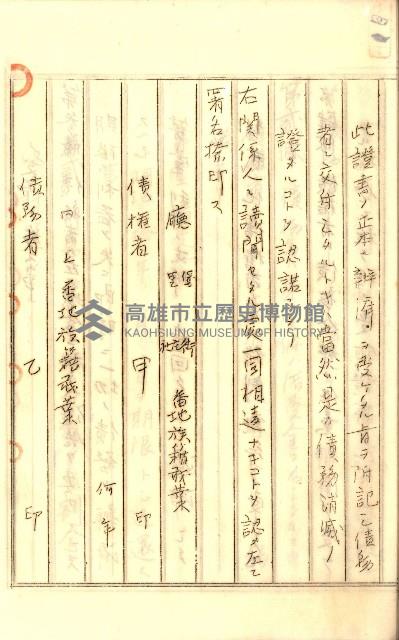 此證書ノ正本ニ辨濟ヲ受ケタル旨ヲ附記シ債務
者ニ交付シタルトキハ當然是ノ債務消滅ノ
證タルコトヲ認諾セリ
右関係人ニ讀聞セタル処一同相違ナキコトヲ認メ左ニ
署名捺印ス
廳 堡里 街庄社 番地族籍職業
債権者 甲 印
何年
同上番地族籍職業
債務者 乙 印
高雄市立歷史博物館
KAOHSIUNG MUSEUM OF HISTORY